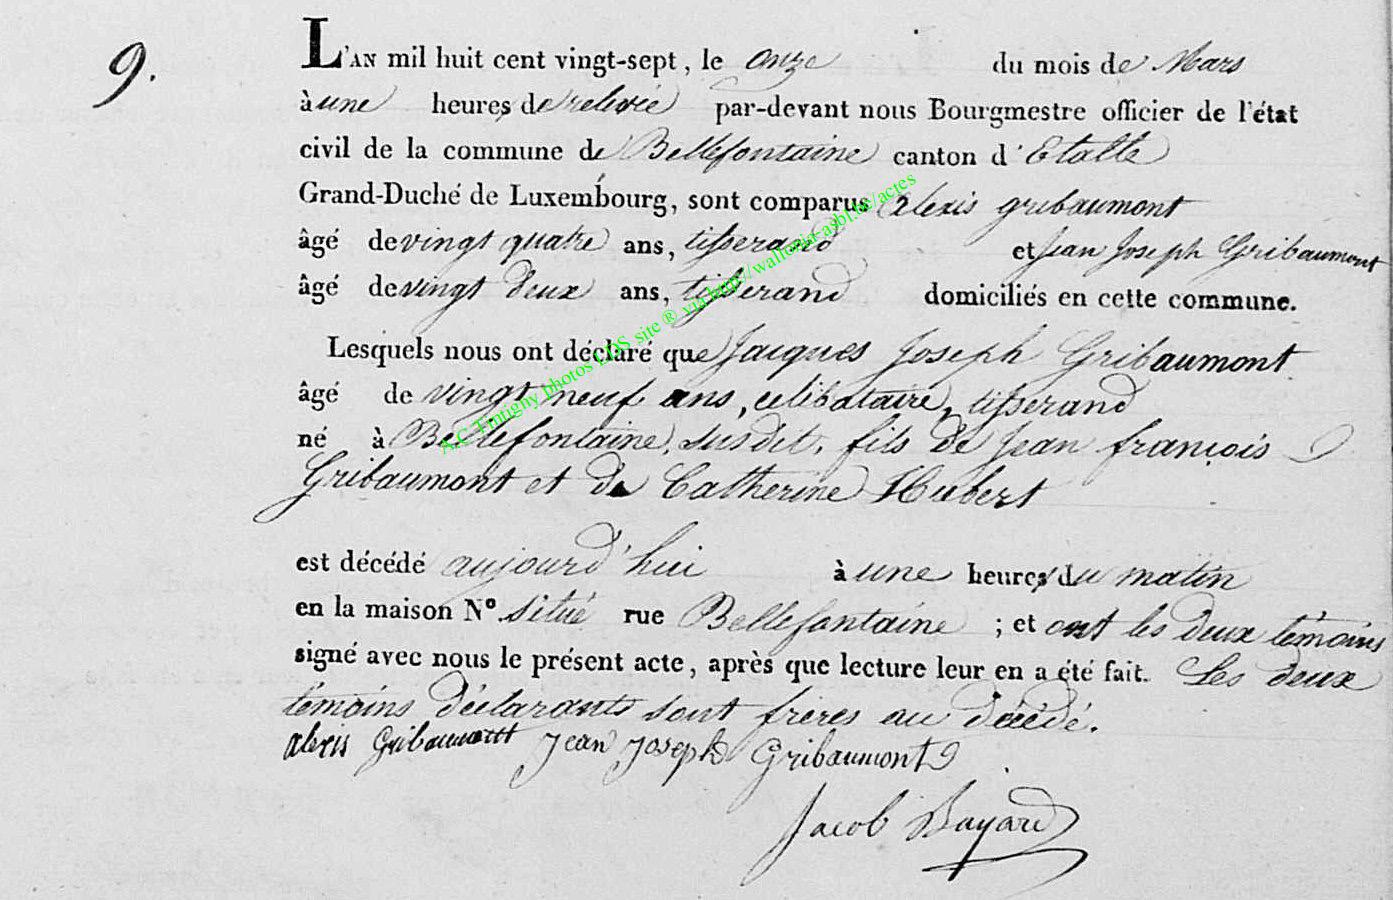 9.
L'AN mil huit cent vingt-sept, le onze du mois de Mars
à une heures de relevée par-devant nous Bourgmestre officier de l'état
civil de la commune de Bellefontaine canton d'Etalle
Grand-Duché de Luxembourg, sont comparus alexis gribaumont
âgé de vingt quatre ans, tisserand et Jean Joseph Gribaumont
âgé de vingt deux ans, tisserand domiciliés en cette commune.
Lesquels nous ont déclaré que Jacques Joseph Gribaumont
âgé de vingt neuf ans, celibataire, tisserand
né à Bellefontaine, susdit, fils de Jean françois
Gribaumont et de Catherine Hubert
est décédé aujourd'hui à une heures du matin
en la maison N° situé rue Bellefontaine ; et ont les deux témoins
signé avec nous le présent acte, après que lecture leur en a été fait. Les deux
témoins déclarants sont frères au décédé.
alexis Gribaumont Jean Joseph Gribaumont
Jacob Bayard
A.C. Tintigny photos LDS site ® via http://wallonia-asbl.be/actes